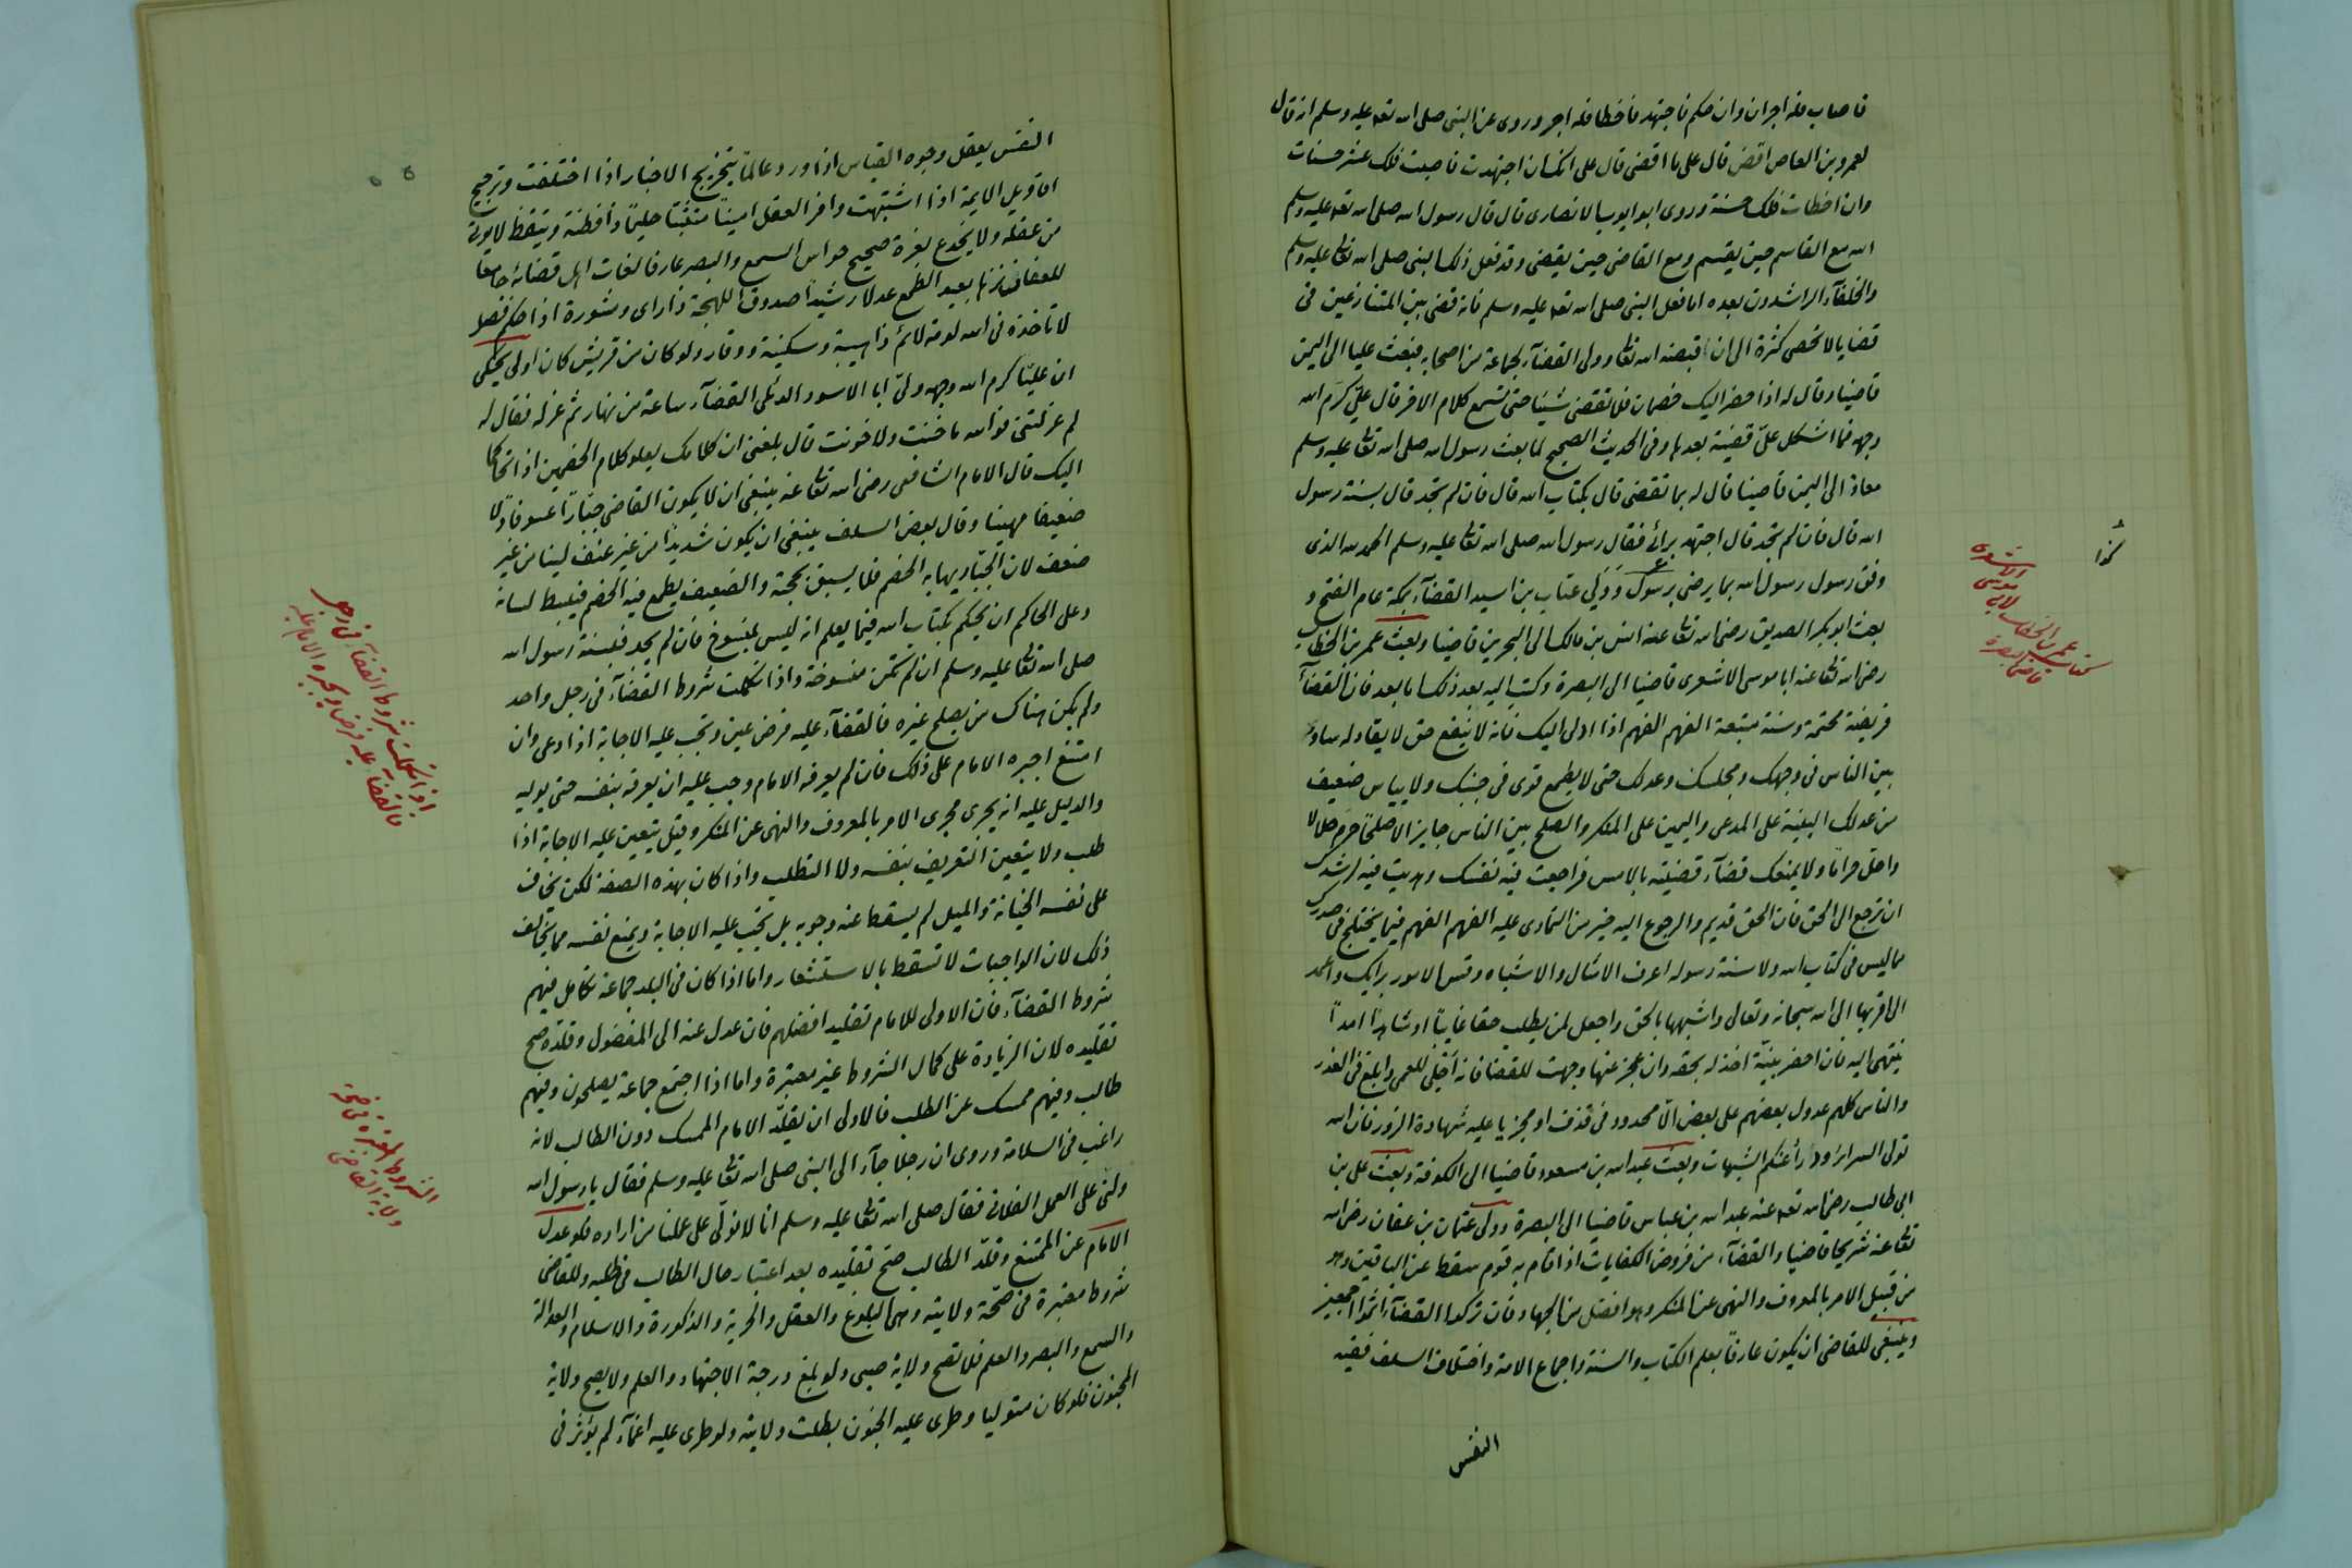 فاصاب فله اجران وان حكم فاجتهد فاخطا فله اجر وروى عن النبى صلى الله تعا عليه وسلم انه قال
لعمرو بن العاص اقض قال على ما اقضى قال على انك ان اجتهدت فاصبت فلك عشر حسنات
وان اخطات فلك حسنة وروى ابو ايوب الانصارى قال قال رسول الله صلى الله تعا عليه وسلم
الله مع القاسم حين يقسم ومع القاضى حين يقضى وقد فعل ذلك النبى صلى الله تعا عليه وسلم
والخلفآء الراشدون بعده اما فعل النبى صلى الله تعا عليه وسلم فانه قضى بين المتنازعين فى
قضايا لا تحصى كثرة الى ان اقبضه الله تعا وولى القضآء لجماعة من اصحابه فبعث عليا الى اليمن
قاضيا وقال له اذا حضر اليك خصمان فلا تقضى شيئا حتى تسمع كلام الاخر قال علىّ كرّم الله
وجهه فما اشكل علىّ قضية بعدها وفى الحديث الصحيح لما بعث رسول الله صلى الله تعا عليه وسلم
معاذ الى اليمن قاضيا قال له بما تقضى قال بكتاب الله قال فان لم تجد قال بسنة رسول
الله قال فان لم تجد قال اجتهد برائى فقال رسول الله صلى الله تعا عليه وسلم الحمد لله الذى
وفق رسول رسول الله بما يرضى رسول وَوَلّى عتاب بن اسيد القضآء بمكة عام الفتح و
بعث ابو بكر الصديق رضى الله تعا عنه انس بن مالك الى البحرين قاضيا وبعث عمر بن الخطاب
رضى الله تعا عنه ابا موسى الاشعرى قاضيا الى البصرة وكتب اليه بعد ذلك اما بعد فان القضآء
فريضة محكمة وسنة متبعة الفهم الفهم اذا ادلى اليك فانه لا ينفع حق لا نفاد له ساو
بين الناس فى وجهك ومجلسك وعدلك حتى لا يطمع قوى فى جنبك ولا يياس ضعيف
من عدلك البينة على المدعى واليمين على المنكر والصلح بين الناس جايز الا صلحًا حرّم حلالا
واحلّ حراما ولا يمنعك قضآء قضيته بالامس فراجعت فيه نفسك وهديت فيه لرشدك
ان ترجع الى الحق فان الحق قديم والرجوع اليه خير من التمادى عليه الفهم الفهم فيما يختلج فى صدرك
مما ليس فى كتاب الله ولا سنة رسوله اعرف الامثال والاشباه وقس الامور برايك واعمد
الى اقربها الى الله سبحانه وتعالى واشبهها بالحق واجعل لمن يطلب حقا غايبًا او شاهدًا امدًا
ينتهى اليه فان احضر بيّنة اخذ له بحقه وان عجز عنها وجهت للقضا فانه اجلى للعمى وابلغ فى العذر
والناس كلهم عدول بعضهم على بعض الّا محدود فى قذف او مجربا عليه شهادة الزور فان الله
تولى السراىٔر ودرأ عنكم الشبهات وبعث عبد الله بن مسعود قاضيا الى الكوفة وبعث على بن
ابى طالب رضى الله تعا عنه عبد الله بن عباس قاضيا الى البصرة وولّى عثمان بن عفان رضى الله
تعا عنه شريحا قاضيا والقضآء من فروض الكفايات اذا قام به قوم سقط عن الباقين وهو
من قبيل الامر بالمعروف والنهى عن المنكر وهو افضل من الجهاد فان تركوا القضآء اثموا اجمعين
وينبغى للقاضى ان يكون عارفا بعلم الكتاب والسنة واجماع الامة واختلاف السلف فقيه
النفس
كتاب عمر بن الخطاب لابى موسى الاشعرى
قاضى البصرة
النفس يعقل وجوه القياس اذا ورد عالمًا بتخريج الاخبار اذا اختلفت وترجيح
اقاويل الايمة اذا اشتبهت وافر العقل امينًا متثبّتا حليمًا ذا فطنة وتيقظ لا يوتى
من غفلة ولا يخدع لغرة صحيح حواس السمع والبصر عارفا لغات اهل قضائه جامعًا
للعفاف نزها بعيد الطمع عدلا رشيدًا صدوق اللهجة ذا راى ومشورة اذا حكم فصل
لا تاخذه فى الله لومة لائم ذا هيبة وسكينة ووقار ولو كان من قريش كان اولى يحكى
ان عليًّا كرم الله وجهه ولّى ابا الاسود الدئلى القضآء ساعة من نهار ثم عزله فقال له
لم عزلتنى فوالله ما خنت ولا خونت قال بلغنى ان كلامك يعلو كلام الخصمين اذا تحاكما
اليك قال الامام الشافعى رضى الله تعا عنه ينبغى ان لا يكون القاضى جبّارًا عسوفًا ولا
ضعيفا مهينا وقال بعض السلف ينبغى ان يكون شديدًا من غير عنف لينا من غير
ضعف لان الجبّار يهابه الخصم فلا يسبق بحجة والضعيف يطمع فيه الخصم فينبسط لسانه
وعلى الحاكم ان يحكم بكتاب الله فيما يعلم انه ليس بمنسوخ فان لم يجد فبسنة رسول الله
صلى الله تعا عليه وسلم ان لم تكن منسوخة واذا تكملت شروط القضآء فى رجل واحد
ولم يكن هناك من يصلح غيره فالقضآء عليه فرض عين وتجب عليه الاجابة اذا دعى وان
امتنع اجبره الامام على ذلك فان لم يعرفه الامام وجب عليه ان يعرفه بنفسه حتى يوليه
والدليل عليه انه يجرى مجرى الامر بالمعروف والنهى عن المنكر وقيل يتعين عليه الاجابة اذا
طلب ولا يتعين التعريف بنفسه ولا التطلب واذا كان بهذه الصفة لكن يخاف
على نفسه الخيانة والميل لم يسقط عنه وجوبه بل تجب عليه الاجابة ويمنع نفسه مما يخالف
ذلك لان الواجبات لا تسقط بالاستشعار واما اذا كان فى البلد جماعة تكامل فيهم
شروط القضآء فان الاولى للامام تقليد افضلهم فان عدل عنه الى المفضول وقلّده صح
تقليده لان الزيادة على كمال الشروط غير معتبرة واما اذا اجتمع جماعة يصلحون وفيهم
طالب وفيهم ممسك عن الطلب فالاولى ان يقلّد الامام الممسك دون الطالب لانه
راغب فى السلامة وروى ان رجلا جآء الى النبى صلى الله تعا عليه وسلم فقال يا رسول الله
ولنى على العمل الفلانى فقال صلى الله تعا عليه وسلم انا لا نولّى على عملنا من اراده فلو عدل
الامام عن الممتنع وقلّد الطالب صحّ تقليده بعد اعتبار حال الطالب فى طلبه وللقاضى
شروط معتبرة فى صحّة ولايته وهى البلوغ والعقل والحرية والذكورة والاسلام والعدالة
والسمع والبصر والعلم فلا تصح ولاية صبى ولو بلغ درجة الاجتهاد والعلم ولا يصح ولاية
المجنون فلو كان متوليا وطرى عليه الجنون بطلت ولايته ولو طرى عليه اغمآء لم يؤثر فى
اذا تكملت شروط القضآء فى رجل
فالقضآء عليه فرض ويجبره الامام عليه
الشروط المعتبرة فى صحة
ولاية القاضى